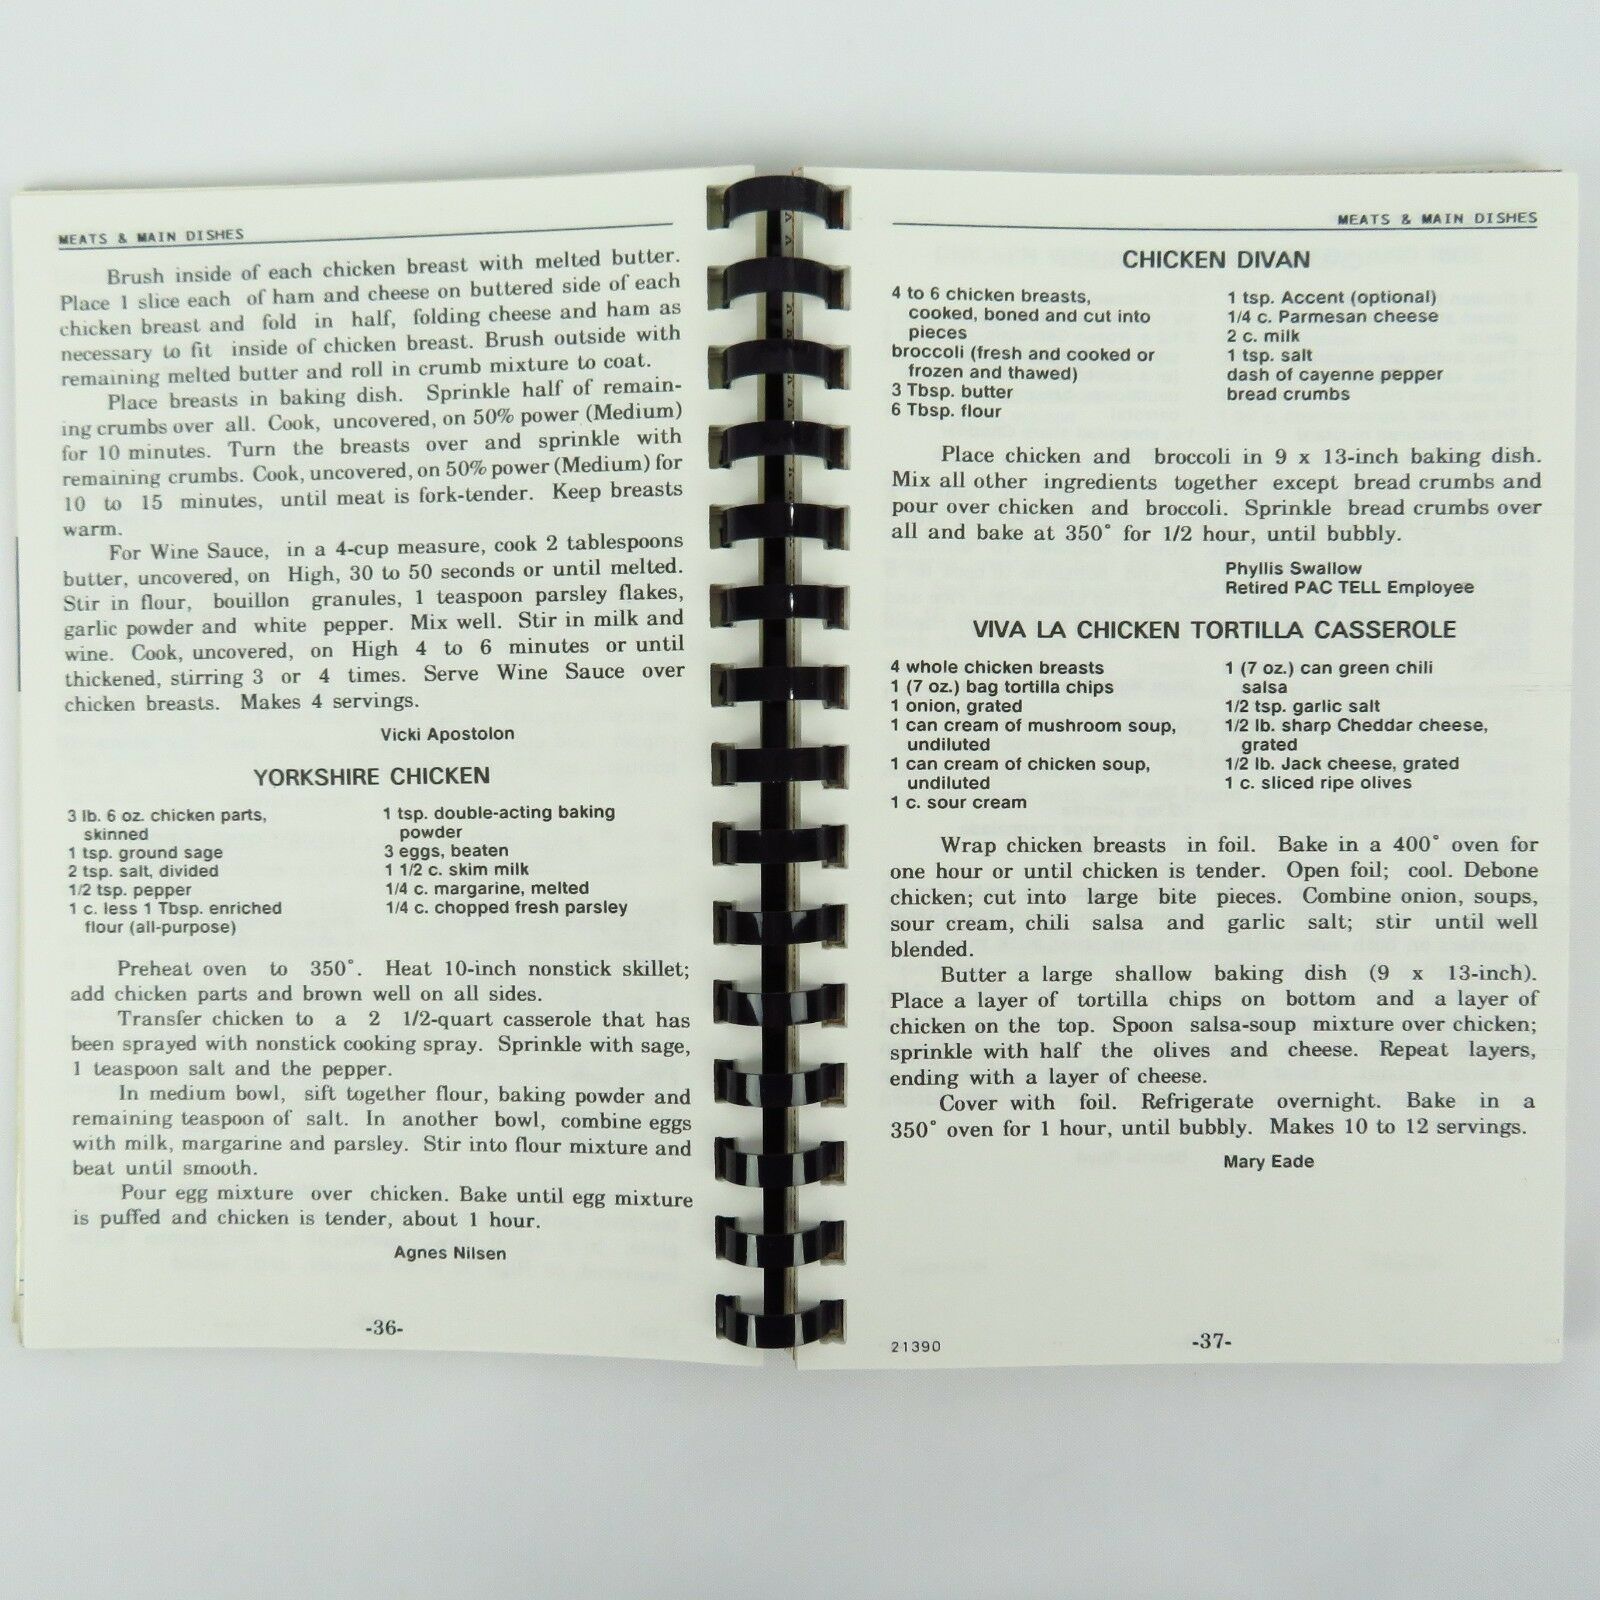 MEATS & MAIN DISHES
Brush inside of each chicken breast with melted butter.
Place 1 slice each of ham and cheese on buttered side of each
chicken breast and fold in half, folding cheese and ham as
necessary to fit inside of chicken breast. Brush outside with
remaining melted butter and roll in crumb mixture to coat.
Place breasts in baking dish. Sprinkle half of remain-
ing crumbs over all. Cook, uncovered, on 50% power (Medium)
for 10 minutes. Turn the breasts over and sprinkle with
remaining crumbs. Cook, uncovered, on 50% power (Medium) for
10 to 15 minutes, until meat is fork-tender. Keep breasts
warm.
For Wine Sauce, in a 4-cup measure, cook 2 tablespoons
butter, uncovered, on High, 30 to 50 seconds or until melted.
Stir in flour, bouillon granules, 1 teaspoon parsley flakes,
garlic powder and white pepper. Mix well. Stir in milk and
wine. Cook, uncovered, on High 4 to 6 minutes or until
thickened, stirring 3 or 4 times. Serve Wine Sauce over
chicken breasts. Makes 4 servings.
Vicki Apostolon
YORKSHIRE CHICKEN
3 lb. 6 oz. chicken parts,
skinned
1 tsp. ground sage
2 tsp. salt, divided
1/2 tsp. pepper
1 c. less 1 Tbsp. enriched
flour (all-purpose)
1 tsp. double-acting baking
powder
3 eggs, beaten
1 1/2 c. skim milk
1/4 c. margarine, melted
1/4 c. chopped fresh parsley
Preheat oven to 350°. Heat 10-inch nonstick skillet;
add chicken parts and brown well on all sides.
Transfer chicken to a 2 1/2-quart casserole that has
been sprayed with nonstick cooking spray. Sprinkle with sage,
1 teaspoon salt and the pepper.
In medium bowl, sift together flour, baking powder and
remaining teaspoon of salt. In another bowl, combine eggs
with milk, margarine and parsley. Stir into flour mixture and
beat until smooth.
Pour egg mixture over chicken. Bake until egg mixture
is puffed and chicken is tender, about 1 hour.
Agnes Nilsen
-36-
MEATS & MAIN DISHES
CHICKEN DIVAN
4 to 6 chicken breasts,
cooked, boned and cut into
pieces
broccoli (fresh and cooked or
frozen and thawed)
3 Tbsp. butter
6 Tbsp. flour
1 tsp. Accent (optional)
1/4 c. Parmesan cheese
2 c. milk
1 tsp. salt
dash of cayenne pepper
bread crumbs
Place chicken and broccoli in 9 x 13-inch baking dish.
Mix all other ingredients together except bread crumbs and
pour over chicken and broccoli. Sprinkle bread crumbs over
all and bake at 350° for 1/2 hour, until bubbly.
Phyllis Swallow
Retired PAC TELL Employee
VIVA LA CHICKEN TORTILLA CASSEROLE
4 whole chicken breasts
1 (7 oz.) bag tortilla chips
1 onion, grated
1 can cream of mushroom soup,
undiluted
1 can cream of chicken soup,
undiluted
1 c. sour cream
1 (7 oz.) can green chili
salsa
1/2 tsp. garlic salt
1/2 lb. sharp Cheddar cheese,
grated
1/2 lb. Jack cheese, grated
1 c. sliced ripe olives
Wrap chicken breasts in foil. Bake in a 400° oven for
one hour or until chicken is tender. Open foil; cool. Debone
chicken; cut into large bite pieces. Combine onion, soups,
sour cream, chili salsa and garlic salt; stir until well
blended.
Butter a large shallow baking dish (9 x 13-inch).
Place a layer of tortilla chips on bottom and a layer of
chicken on the top. Spoon salsa-soup mixture over chicken;
sprinkle with half the olives and cheese. Repeat layers,
ending with a layer of cheese.
Cover with foil. Refrigerate overnight. Bake in a
350° oven for 1 hour, until bubbly. Makes 10 to 12 servings.
Mary Eade
21390
-37-